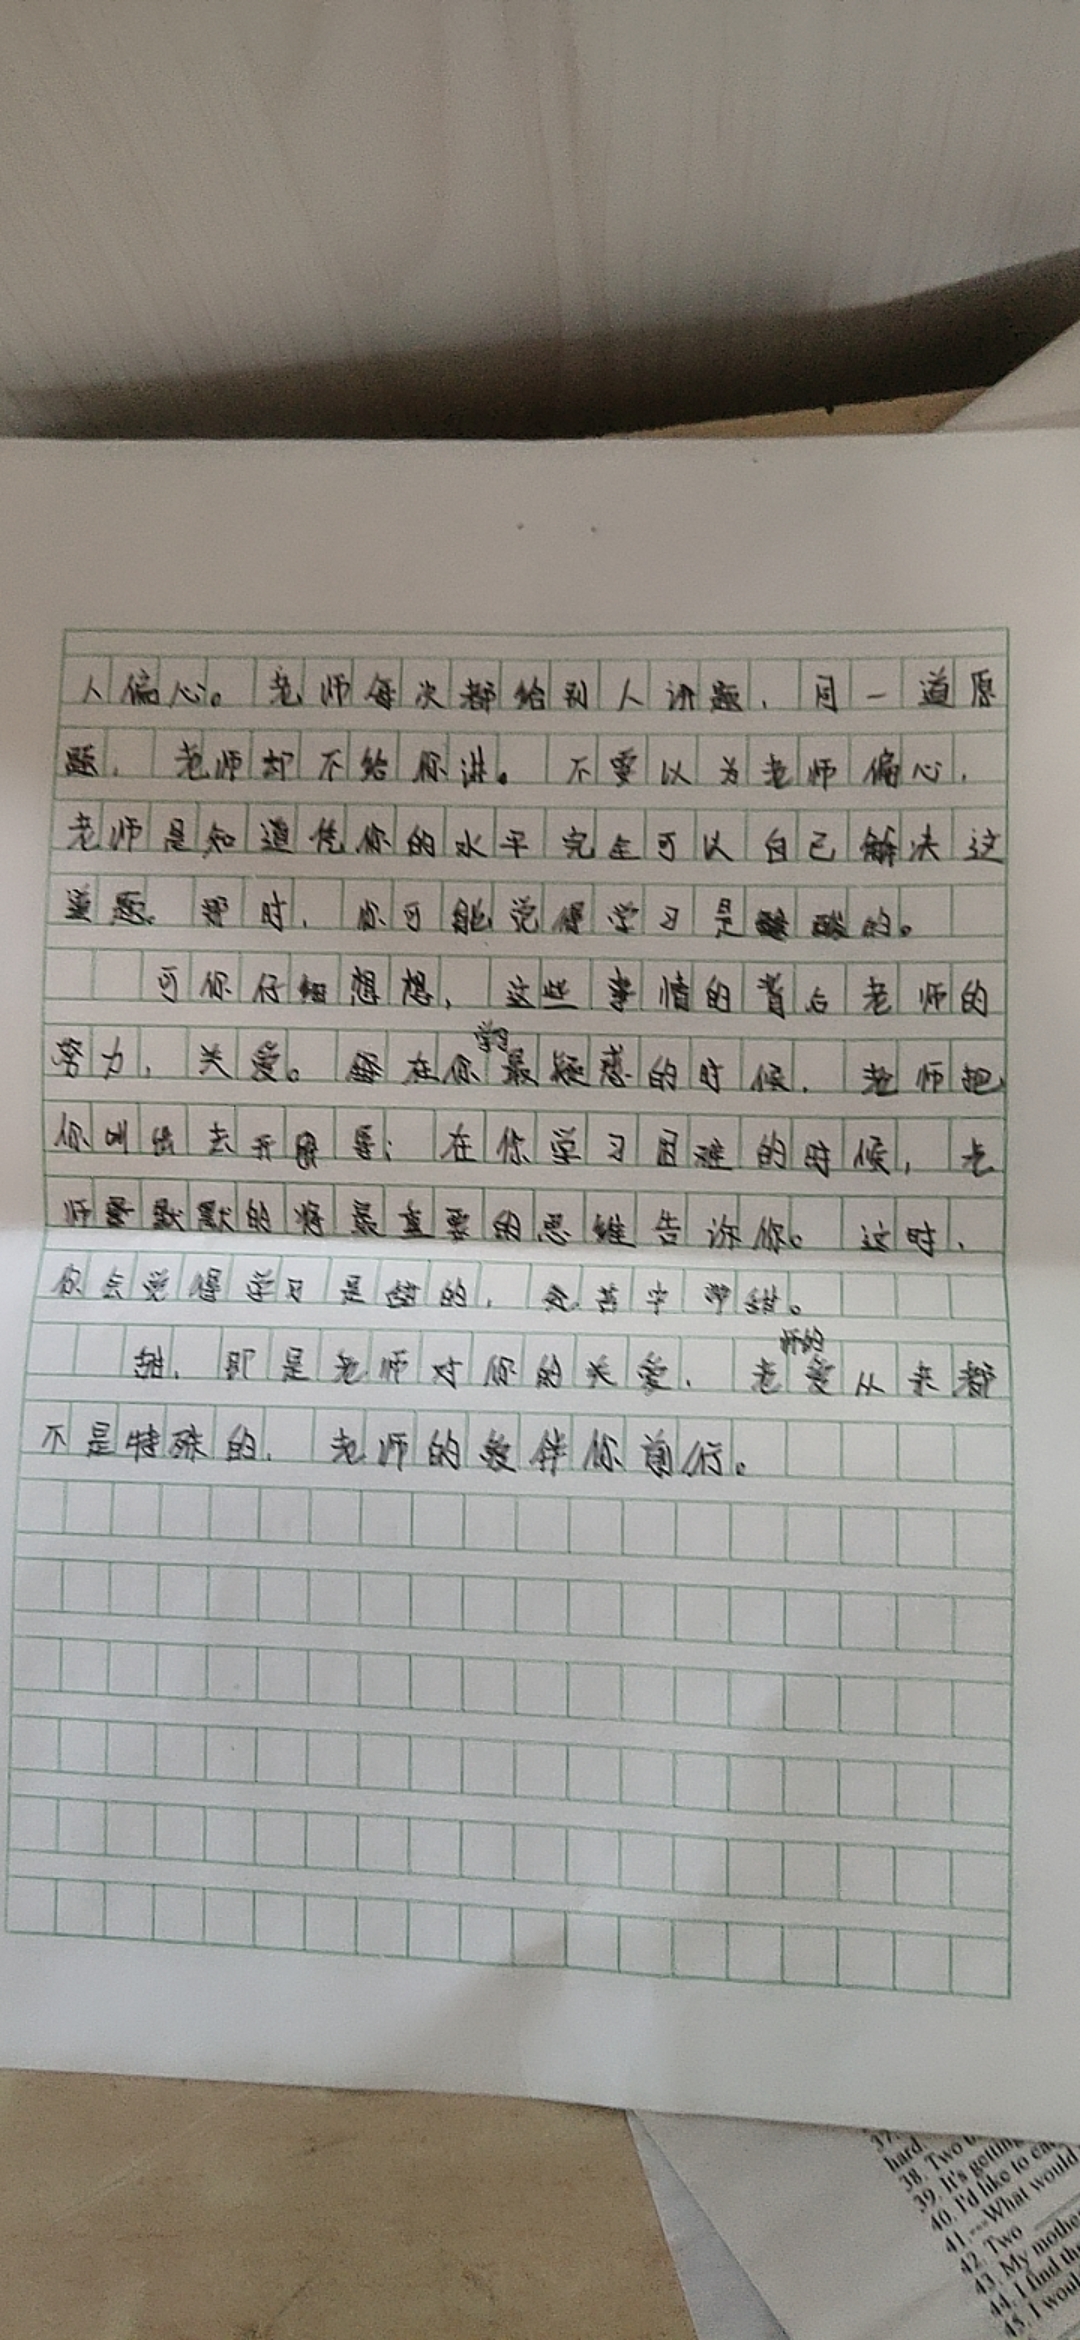 人偏心。老师每次都给别人讲题，同一道原
题，老师却不给你讲。不要以为老师偏心，
老师是知道凭你的水平完全可以自己解决这
道题。那时，你可能觉得学习是酸的。
可你仔细想想，这些事情的背后老师的
努力，关爱。在你学习最疑惑的时候，老师把
你叫出去开导；在你学习困难的时候，老
师默默的将最重要的思维告诉你。这时，
你会觉得学习是甜的，会苦中带甜。
甜，即是老师对你的关爱，老师的爱从来都
不是特殊的，老师的爱伴你前行。
37.
hard.
38. Two
39. It's getting
40. I'd like to
41. ---What would
42. Two
43. My mother
44. I find
45. I would